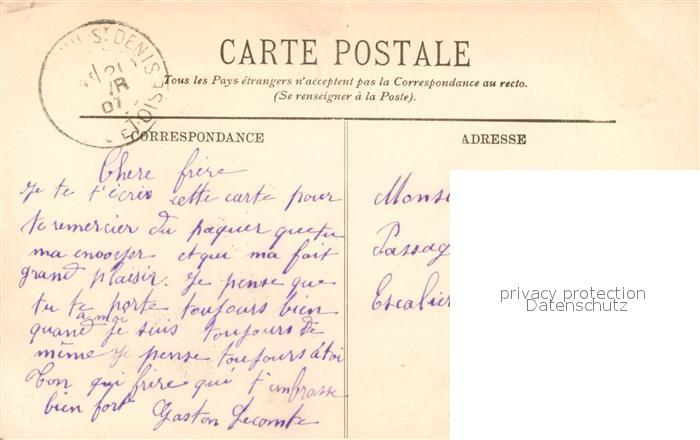 St DENIS
21
07
ET-OISE
CARTE POSTALE
Tous les Pays étrangers n'acceptent pas la Correspondance au recto.
(Se renseigner à la Poste).
CORRESPONDANCE
Chere frère
Je te t'écris cette carte pour
te remercier du paquer que tu
ma envoyer et qui ma fait
grand plaisir. Je pense que
tu te porte toujours bien
a moi
quand je suis toujours de
même je pense toujours à toi
Ton qui frère qui t'embrasse
bien fort Gaston Lecomte
ADRESSE
Monsi
Passag
Escalier
privacy protection
Datenschutz